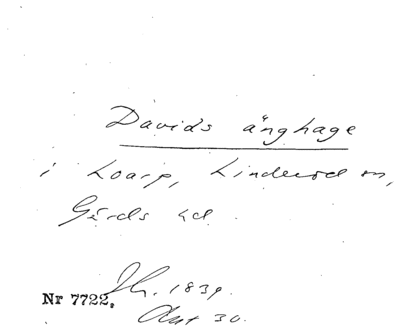 Davids änghage
i Loarp, Linderöd sn,
Gärds hd.
Jh. 1839.
Nr 7722. Akt 30.